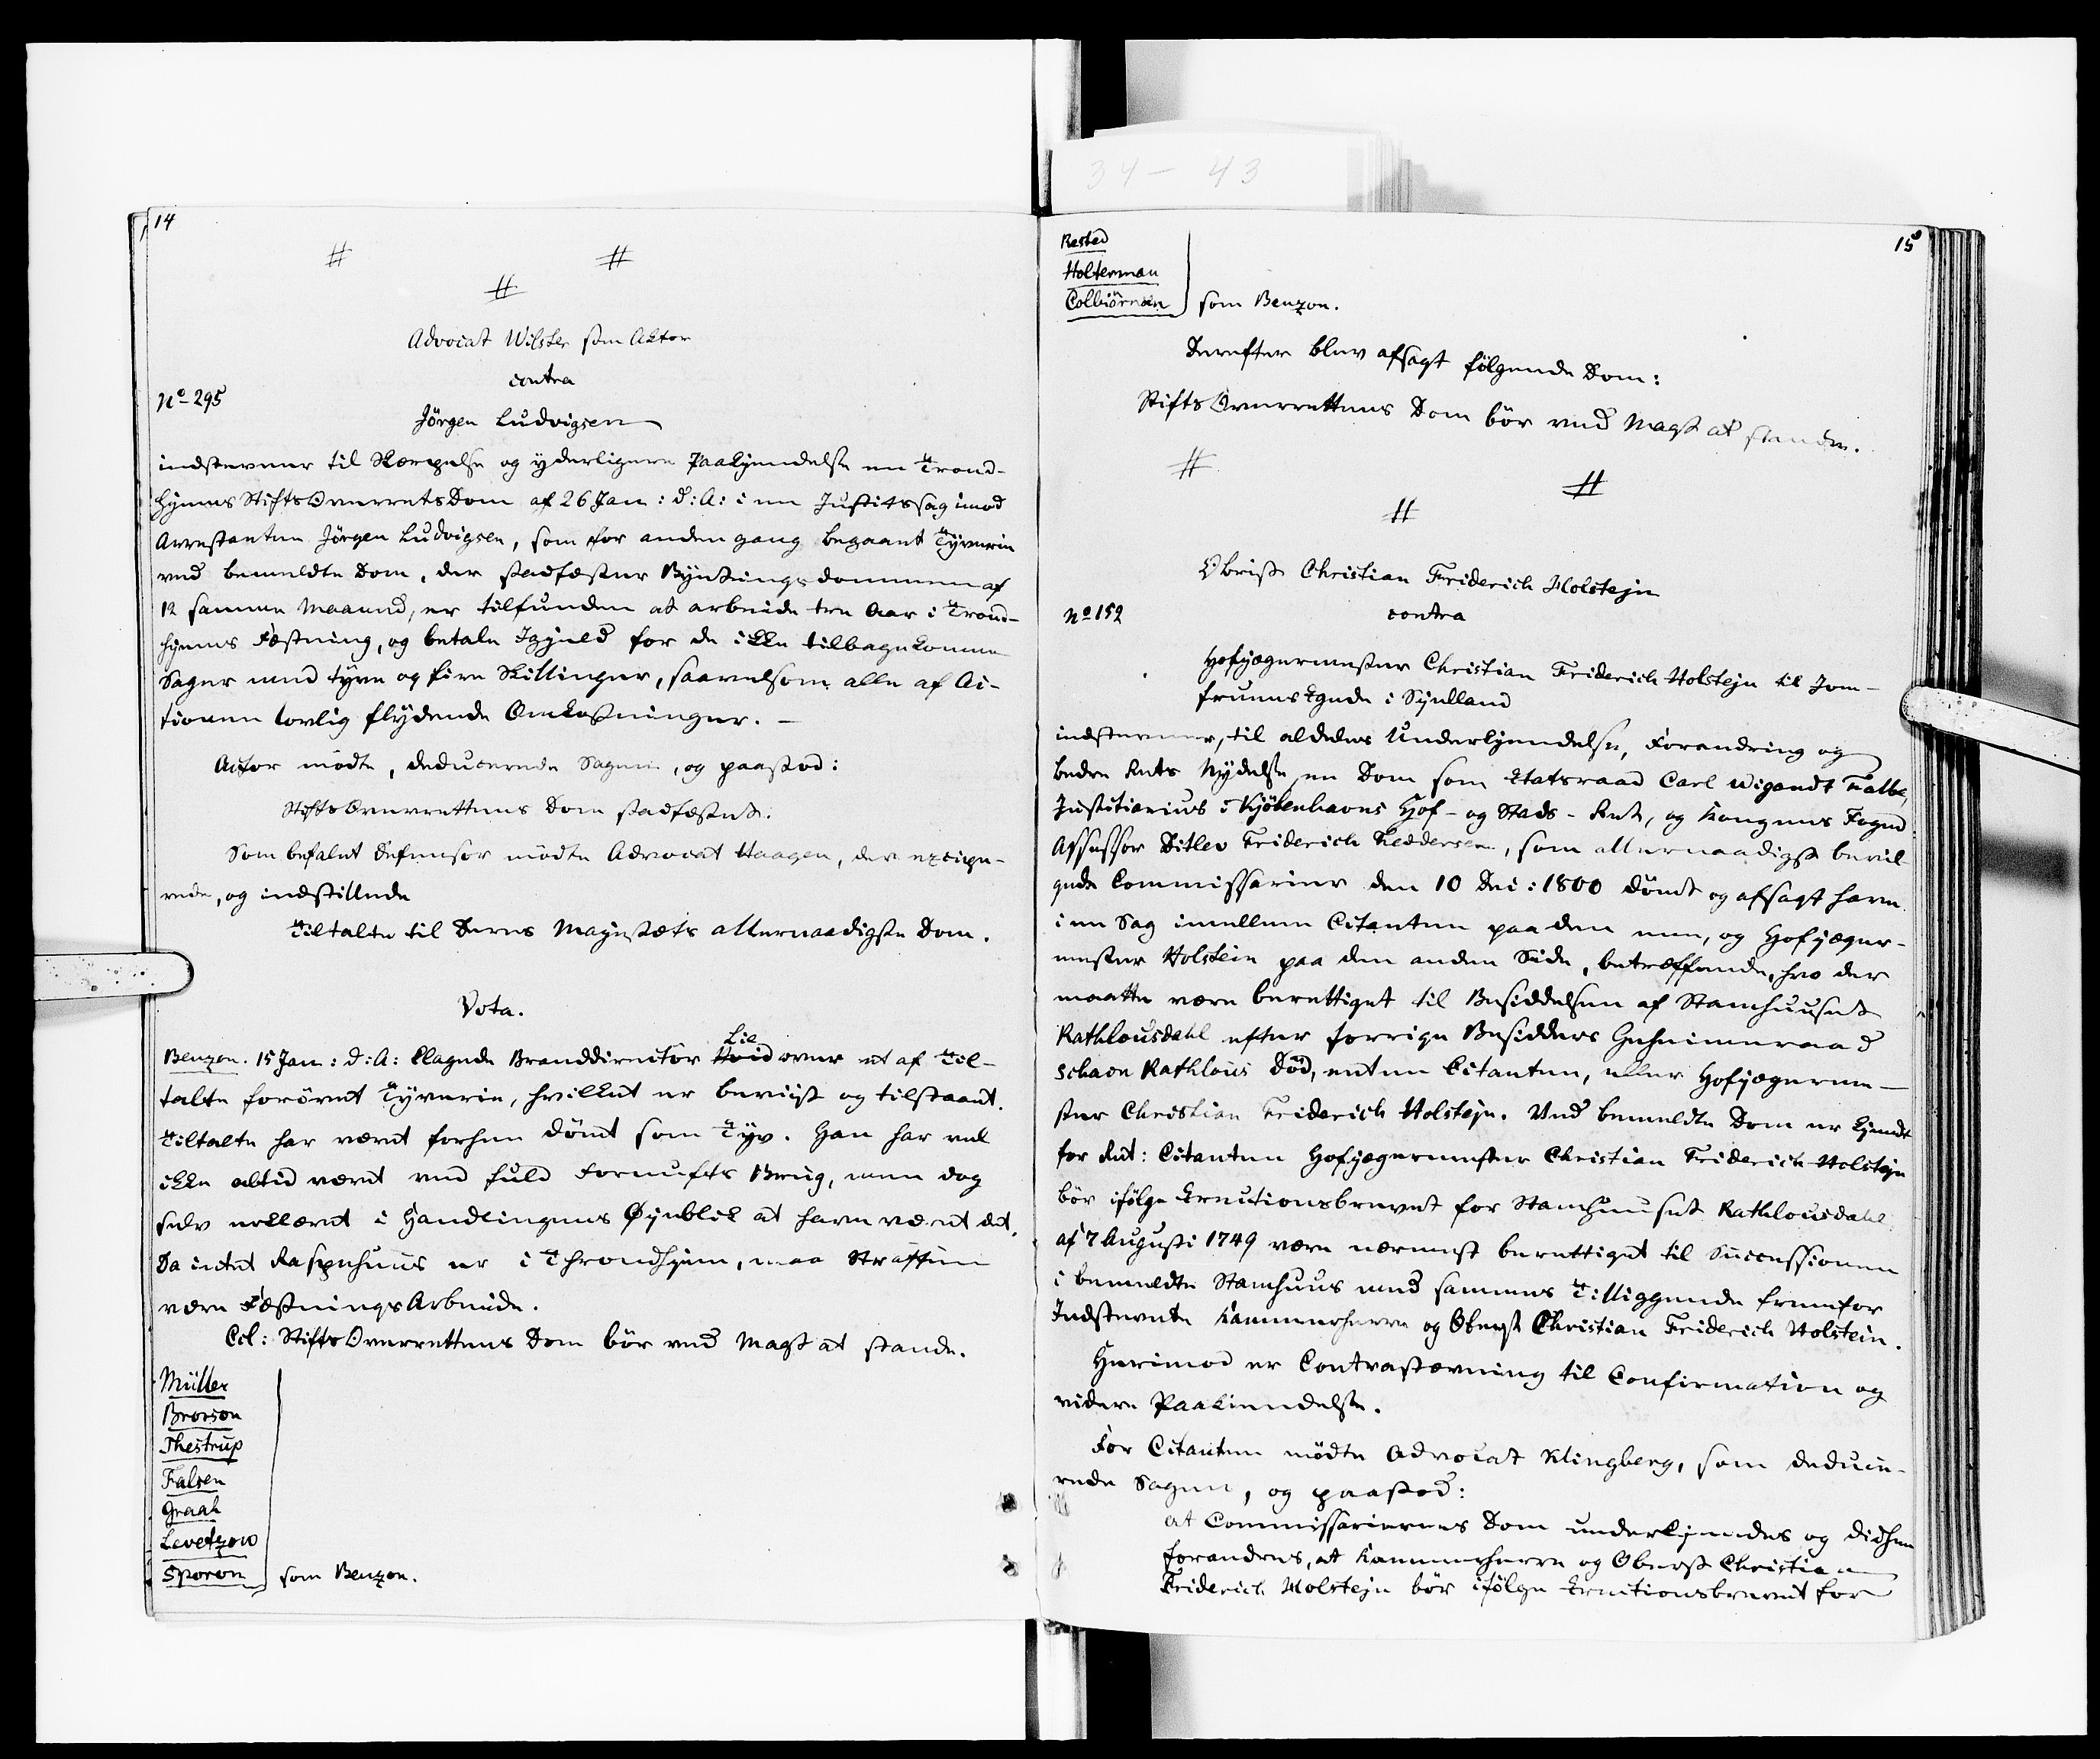 14
#
#
#
Advocat Wilster som Aktor
contra
No 295
Jörgen Ludvigsen
indstevner til Skærpelse og yderligere Paakjendelse en Trond-
hjems StiftsOverretsDom af 26 Jan: d: A: i en Justitssag imod
Arrestanten Jörgen Ludvigsen, som for anden gang begaaet Tyverie
ved bemeldte Dom, der stadfæster Bytingsdommen af
12 samme Maaned, er tilfunden at arbeide tre Aar i Trond-
hjems Fæstning, og betale Igjæld for de ikke tilbagekomne
Sager med tyve og fire Skillinger, saavelsom alle af Ac-
tionen lovlig flydende Omkostninger. —
Actor mödte, deducerede Sagen, og paastod:
StiftsOverrettens Dom stadfæstet.
Som befalet Defensor mödte Advocat Haagen, der excipe-
rede, og indstillede
Tiltalte til Deres Majestæts allernaadigste Dom.
Vota.
Lie
Benzon. 15 Jan: d: A: klagede Branddirectör Hvid over et af Til-
talte forövet Tyverie, hvilket er beviist og tilstaaet.
Tiltalte har været forhen dömt som Tyv. Han har vel
ikke altid været ved fuld Fornufts Brug, men dog
selv erklæret i Handlingens Øjeblik at have været det.
Da intet Raspehuus er i Throndhjem, maa Straffen
være FæstningsArbeide.
Ccl: StiftsOverrettens Dom bör ved Magt at stande.
Müller
Brorson
Thestrup
Falsen
Graah
Levetzow
Sporon som Benzon.
34 - 43
15
Rested
Holterman
Colbiörnsen som Benzon.
Derefter blev afsagt fölgende Dom:
StiftsOverrettens Dom bör ved Magt at stande.
#
#
#
Obrist Christian Friderich Holstejn
No 152
contra
Hofjægermester Christian Friderich Holstejn til Jom-
fruens Egede i Sjelland
indstevner, til aldeles Underkjendelse, Forandring og
bedre Rets Nydelse en Dom som Etatsraad Carl Wigandt Falbe,
Justitiarius i Kjöbenhavns Hof- og Stads-Ret, og Kongens Foged
Assessor Ditlev Friderich Feddersen, som allernaadigst bevil-
gede Commissarier den 10 Dec: 1800 dömt og afsagt have
i en Sag imellem Citanten paa den ene, og Hofjæger-
mester Holstein paa den anden Side, betræffende, hvo der
maatte være berettiget til Besiddelsen af Stamhuuset
Rathlousdahl efter forrige Besidders Geheimeraad
Schack Rathlous Död, enten Citanten, eller Hofjægerme-
ster Christian Friderich Holstejn. Ved bemeldte Dom er kjendt
for Ret: Citanten Hofjægermester Christian Friderich Holstejn
bör ifölge Erectionsbrevet for Stamhuuset Rathlousdahl
af 7 Augusti 1749 være nærmest berettiget til Successionen
i bemeldte Stamhuus med sammes Tilliggende fremfor
Indstevnte Kammerherre og Oberst Christian Friderich Holstein.
Herimod er Contrastævning til Confirmation og
videre Paakiendelse.
For Citanten mödte Advocat Klingberg, som deduce-
rede Sagen, og paastod:
at Commissariernes Dom underkjendes og didhen
forandres, at Kammerherre og Oberst Christian
Friderich Holstejn bör ifölge Erectionsbrevet for